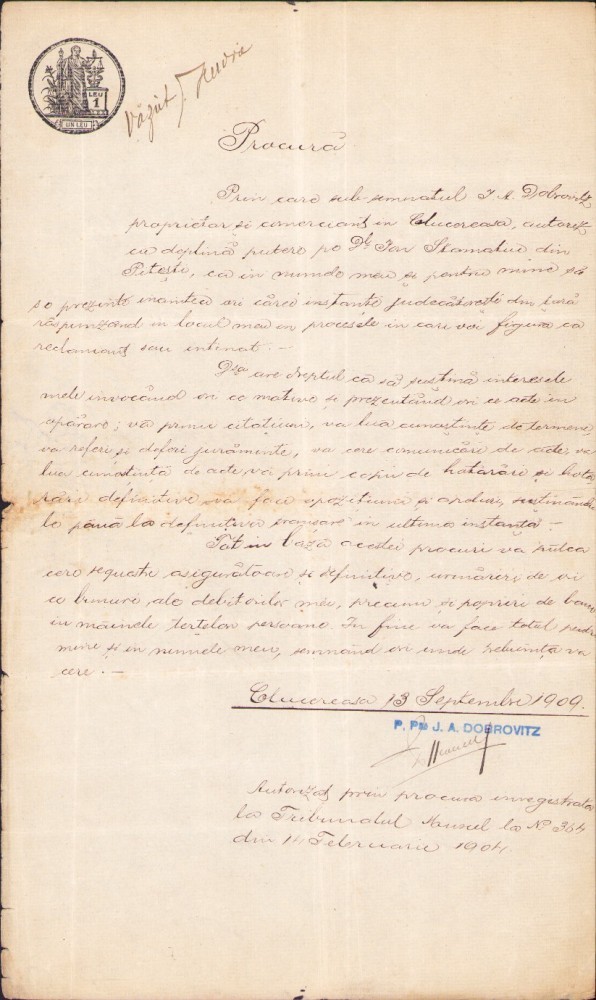 LEU
1
UN LEU
Văzut
Procură
Prin care sub-semnatul J. A. Dobrovitz
proprietar și comerciant in Clucereasa, autoriz
cu deplină putere pe Dl. Ion Stamatiu din
Pitești, ca in numele meu și pentru mine să
se prezinte inaintea ori cărei instante judecătorești din țară
răspunzend in locul meu in procesele in cari voi figura ca
reclamant sau intimat. —
Dsa are dreptul ca să sustină interesele
mele invocând ori ce motive și prezentând ori ce acte in
apărare; va primi citatiuni, va lua cunostinte de termene,
va referi și deferi jurăminte, va cere comunicări de acte, va
lua cunostintă de acte va primi copii de hotarâri și hota
râri definitive va face opozitiuni și apeluri, sustinându
le până la definitiva in ultima instanță —
Tot in baza acestei procuri va putea
cere sequestre asigurătoare și definitive, urmăriri de ori
ce bunuri ale debitorilor mei, precum și popriri de bani
in mâinele terțelor persoane. In fine va face totul pentru
mine și in numele meu, semnând ori unde trebuința va
cere. —
Clucereasa 13 Septembrie 1909.
P. Pa J. A. DOBROVITZ
Autorizat prin procura inregistrata
la Tribunalul Muscel la No 364
din 14 Februarie 1904.